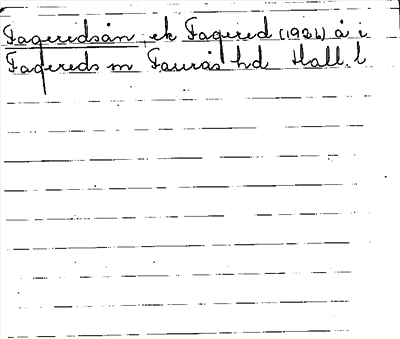 Fageredsån, ek Fagered (1931) å i
Fagereds sn Faurås hd Hall. l